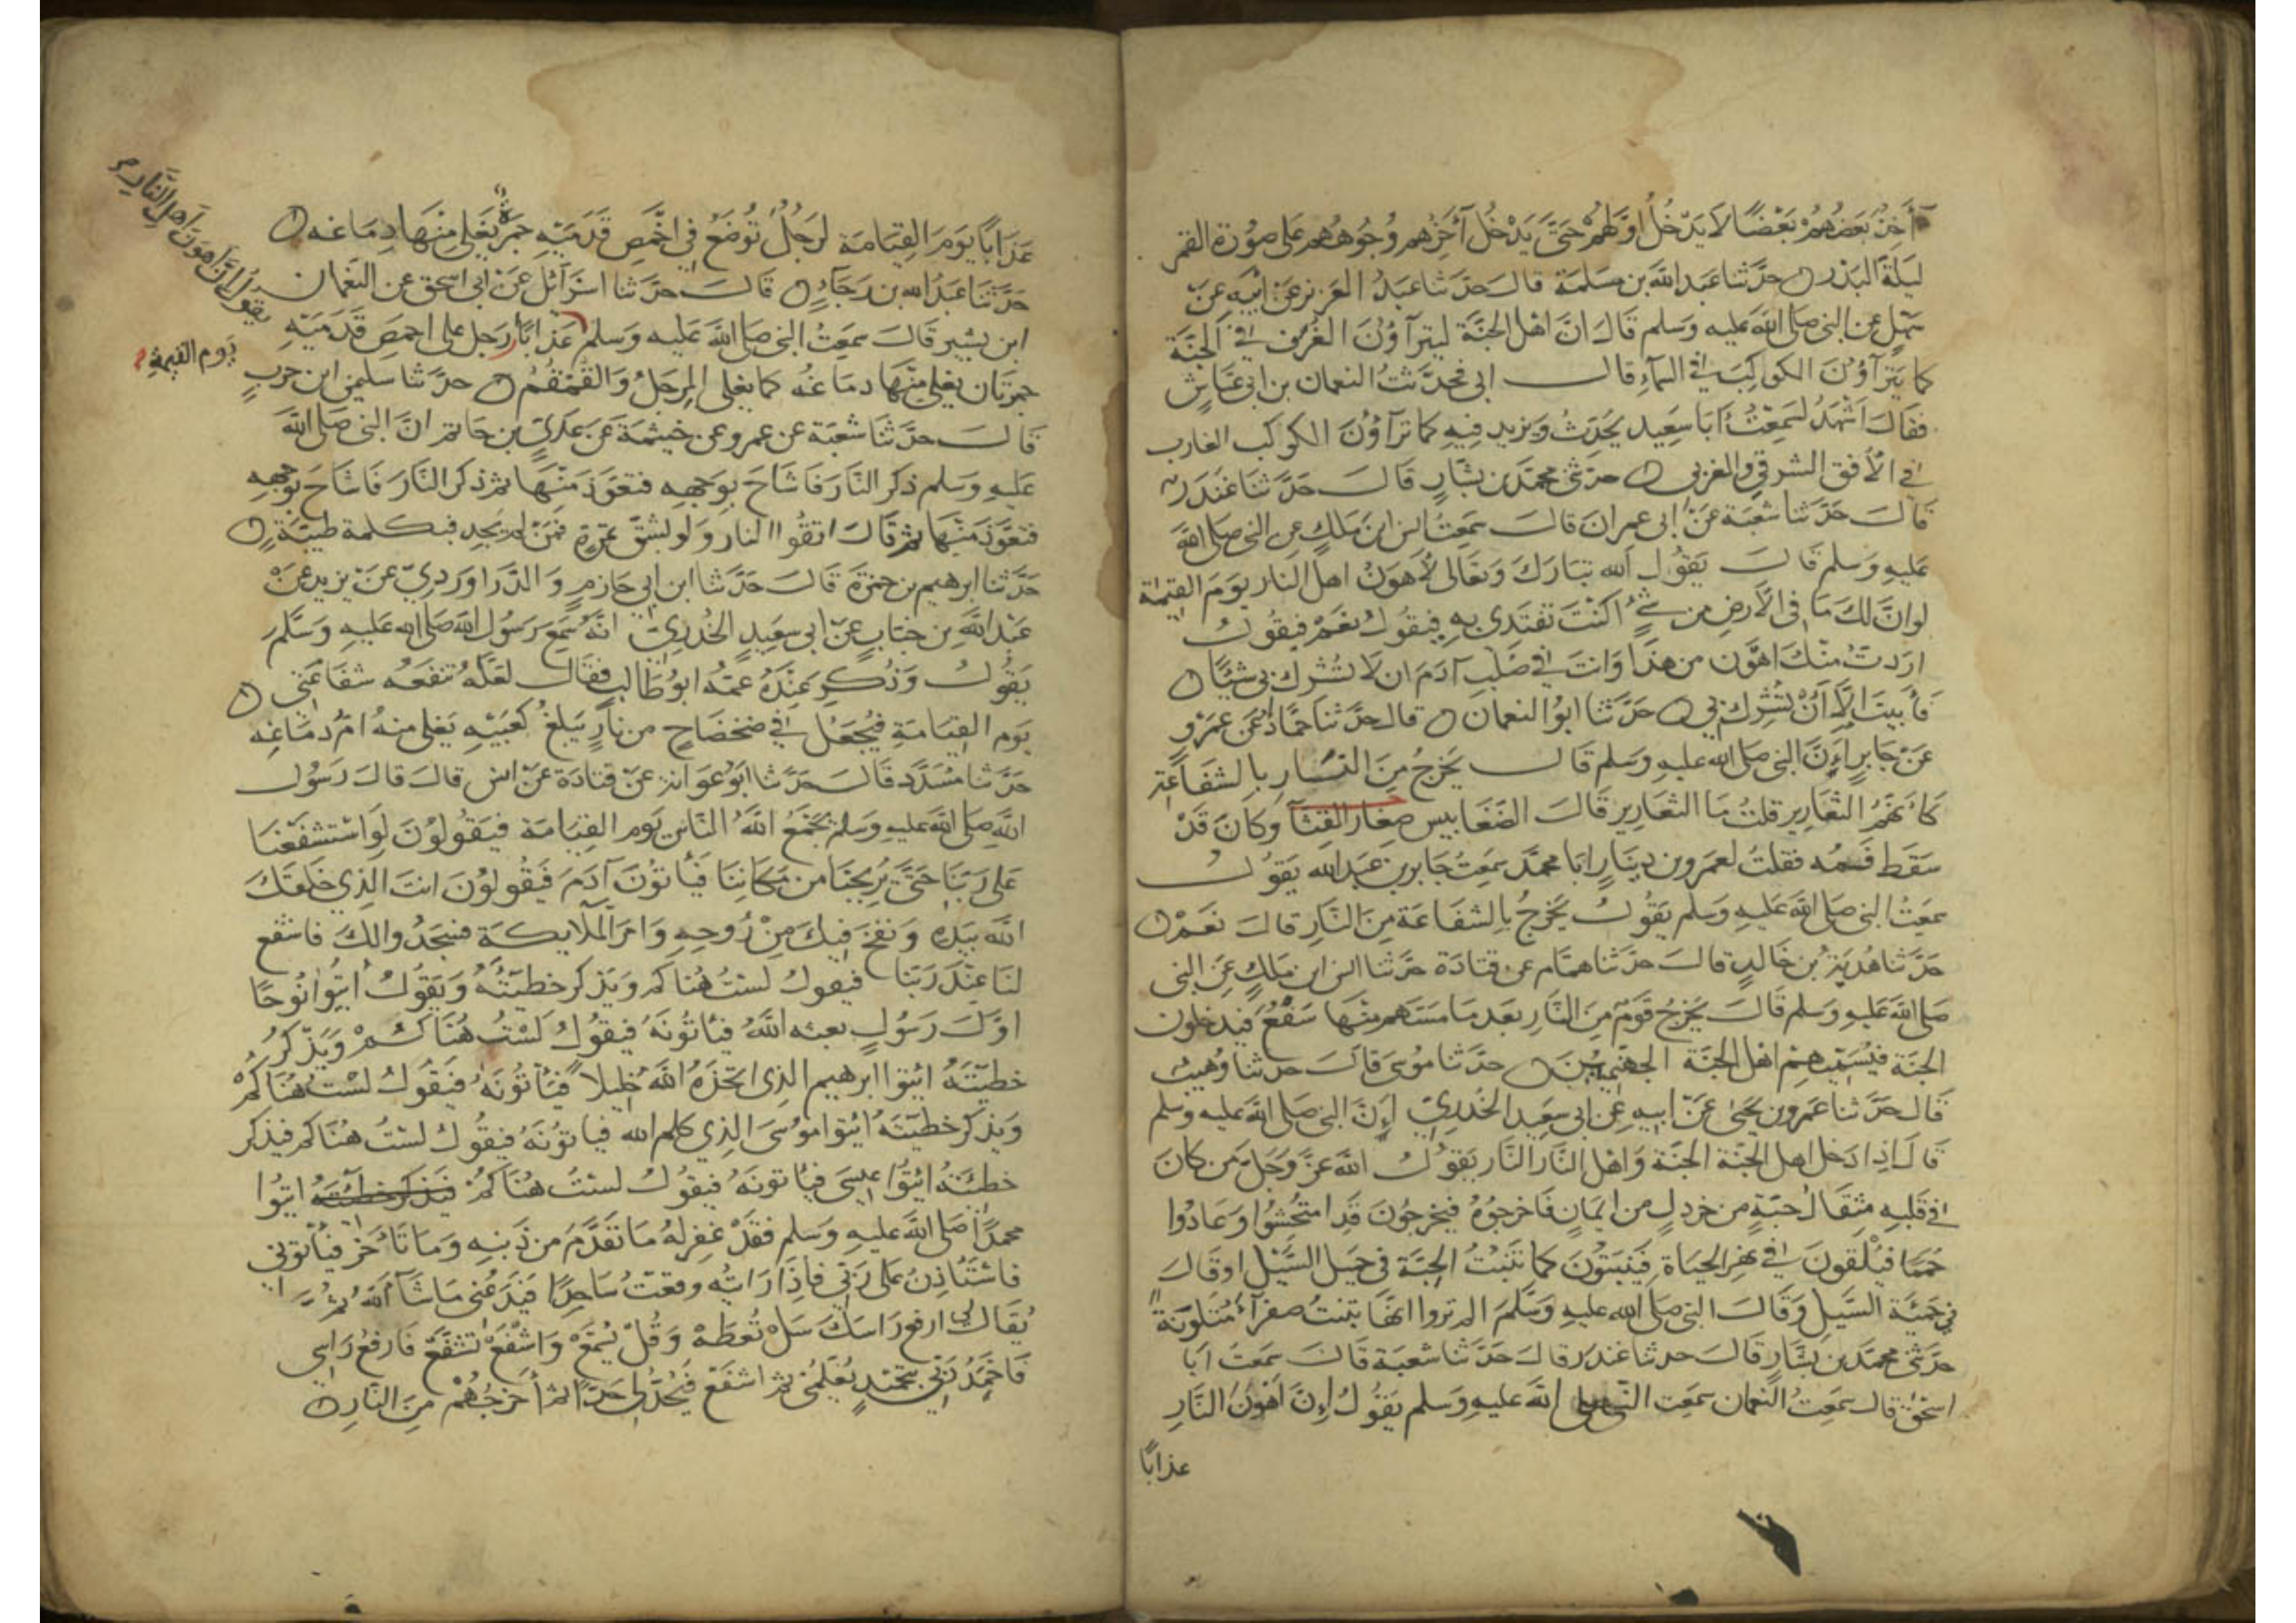 آخذ بَعضُهُمْ بَعْضًا لَا يَدْخُلُ اوّلهُمْ حَتَّى يَدْخُلَ آخِرُهم وُجُوههُم على صُورَة القمر
ليلَةَ البَدْر حدَّثنا عَبد اللَّه بن مسلمَة قالَ حدَّثنا عَبدُ العَزيز عَنْ ابيْهِ عَنْ
سَهْلٍ عن النبي صَلى اللَّهُ عليه وَسَلم قالَ انَّ اهْل الجنَّة ليترآؤنَ الغُرَفَ في الجنَّة
كما يَترآؤنَ الكوكبَ في السمآءِ قالـــــ ابي فحدَّثتُ النعمان بن ابي عَيَّاشٍ
فقالَ اشْهَدُ لسَمِعْتُ أبا سَعِيد يحُدّثُ ويَزيد فيهِ كما ترآؤنَ الكوكب الغارب
في الاُفق الشرقي والغربي حدثني محمَّد بن بشّارٍ قالَــــ حَدَّثنا غندَر
قالَـــ حَدَّثنا شعبَة عَنْ ابى عمرانَ قالَــــ سَمعتُ انس ابن مَلكٍ عن النبي صَلى اللَّهُ
عليهِ وَسَلم قَالَـــ يَقُولُ الله تبَارَكَ وَتعَالى لأهوَنُ اهل النار يوَمَ القِيٰمة
لو انَّ لكَ مَا في الأرضِ من شئٍ اكنْتَ تفتَدى بهِ فيَقولُ نعَمْ فيقولُ
ارَدتُ منْكَ اهوَن من هَذا وَانتَ في صُلبِ آدَمَ ان لَا تشُرك بى شيئًا
فأبيتَ إلّا أَنْ تُشركَ بي حَدَّثنا ابوُ النعمان قالَ حدَّثنا حمَّادٌ عَن عمَرو
عَنْ جَابرٍ إنَّ النبي صَلى الله عليهِ وَسَلم قَالـــ يَخرُجُ مِنَ النَّـــار بالشفاعَة
كأنهمُ الثعَارير قلتُ مَا الثعَارير قالَ الضّغابيس صغار القثآ وكانَ قَدْ
سَقَط فَمُه فقلتُ لعَمرو بن دينارٍ ابَا محمَّد سمعتُ جَابر بن عَبد الله يَقولُـــ
سمعَتُ النبي صَلى اللَّهُ عَليهِ وَسَلم يَقُولُ يَخرجُ بالشفاعَة مِنَ النَّارِ قالَ نعَمْ
حَدَّثنا هُدبَة بن خَالدٍ قالَ حَدثنا همَّام عن قتادَة حدَّثنا انس ابن مَلكٍ عَنِ النبي
صَلى اللَّه عَليهِ وَسَلم قالَ يَخرُجُ قَومٌ مِنَ النَّارِ بعَد مَا مَسّهم منْهَا سَفْعٌ فيَدخلون
الجنَّة فيُسَمّيهمْ اهْل الجنَّة الجهنَّميينَ حدَّثنا موُسَى قالَ حدثنا وُهيب
قالَ حَدَّثنا عَمرو بن يحَيٰى عَنْ ابيهِ عَن ابى سَعِيد الخُدرِيّ إنَّ النبي صَلى اللَّه عليه وسَلم
قالَ اذا دَخل اهل الجنَّة الجنَّة وَاهل النَّار النَّار يَقوُلُ اللَّه عزَّ وَجَل مَن كانَ
في قلبِهِ مثِقَالُ حبّةٍ من خردَلٍ من ايمانٍ فَاخرجوُهُ فيخرجُونَ قَد امتُحشُوا وَعَادُوا
حُمَمًا فيُلْقونَ في نهر الحيَاة فيَنبتُونَ كما تَنبتُ الحِبَّة في حَميل السَّيْل او قَالَ
في حَمئَة السَّيل وَقَالَـ النبي صَلى الله عليهِ وَسَلمَ الم تروا انهَّا تنبتُ صفرآءَ مُتلوّيَة
حَدَّثني محمَّد بن بشَّارٍ قالَـ حدثنا غندَر قالَـ حَدَّثنا شعبَة قالَـ سَمعتُ ابَا
اسحٰق قالَ سَمعتُ النعمان سَمعت النَّبي صلى اللَّه عليهِ وَسَلم يَقُولُ إنَّ أهْوَنَ النَّار
عذابًا
عَذَابًا يَومَ القِيَامَة لرَجُلٌ تُوضَعُ في اخمَصِ قَدَمَيْهِ جَمرَةٌ يَغلي مِنْهَا دِمَاغه
حَدَّثنَا عَبدُ الله بن رَجَاءٍ قَالَــــ حَدَّثنا اسْرَآئيل عَنْ ابى اسحق عن النعَمان
ابن بَشير قَالَــ سَمِعَتُ النبي صَلى اللَّهَ عَليه وَسَلم عَذَابًا رَجل على اخمَصِ قَدَمَيْهِ
يقولُ إنَّ اهونَ اهل النَّار
يَوم القيٰمة
جمرتَان يَغلي منْهَا دمَاغهُ كما يغلى المِرجَلُ وَالقُمْقُمُ حدَّثنا سليمٰن ابن حَربٍ
قالـــ حدَّثنا شعْبَة عَن عمرو عن خيثمَة عَن عَديّ بن حَاتم انَّ النبي صَلى اللَّه
عَليهِ وَسَلم ذكر النَّارَ فَاشَاحَ بوَجهِهِ فتعَوَّذَ منْهَا ثم ذكر النَّارَ فَاشَاحَ بوَجههِ
فتعَوَّذ منْهَا ثم قَالَ اتقوُا النار وَلو بشِقّ تمرةٍ فمَنْ لم يَجد فبكلمة طيّبَةٍ
حَدَّثنا ابرهيم بن حمزَة قَالَـ حَدَّثنا ابن ابي حَازمٍ وَالدَّراوَردِيّ عَنْ يَزيد عَنْ
عَبْد اللَّهِ بن خبّاب عَنْ ابى سعَيِدٍ الخُدريّ انَّهُ سَمعَ رَسُولَ اللَّه صَلى الله عَليهِ وَسَلَّمَ
يَقوُلُ وَذُكـــرِ عِنْدَهُ عَمّهُ ابوُ طَالبٍ فقَالَـ لعَلّهُ تنفعَه شفَاعَتي
يَوم القِيَامَةِ فيُجعَلُ في ضَحْضَاحٍ من نارٍ يَبلغُ كعْبَيْهِ يَغلى منهُ امُّ دمَاغِه
حَدَّثنا مُسَدَّد قَالَـ حدَّثنا ابوُ عوَانة عَنْ قتادَة عَنْ انس قالَـ قالَـ رَسُولُ
اللَّه صَلى اللَّه عليهِ وَسَلم يَجمَعُ اللَّهُ النَّاسَ يَوم القِيَامَة فيَقُولُونَ لَو استَشفَعْنا
عَلى رَبّنَا حَتَّى يُريحَنا من مَكانِنَا فيَأتوُنَ آدَمَ فَيقُولوُنَ انتَ الذِي خلقكَ
اللَّه بيَدهِ وَنفَخ فيْكَ مِنْ رُوحِهِ وَامرَ الملَايكَة فسَجَدُوا لكَ فاشفع
لنَا عِنْدَ رَبّنا فيقولُ لستُ هُنَاكم وَيَذكر خَطيئَتُهُ وَيَقوُلُ ائتُوا نُوحًا
اوّلَ رَسُولٍ بعثه اللَّهُ فيَأتوُنَهُ فيقُولُ لَسْتُ هُنَا كُـمْ وَيَذكرُ
خَطيئَتَهُ ائتوا ابرهيم الذِى اتخَذهُ اللَّهُ خَليلًا فيَأتُونَهُ فيَقُولُ لسْتُ هُنَاكمْ
وَيذكر خَطيئَتَهُ ائتوا موُسَى الذِي كلم الله فيَاتوُنَهُ فيَقُولُ لسْتُ هُنَاكم فيذكر
خَطيئَتهُ ائتوُا عِيسَى فيَأتونَهُ فيقوُلُ لسْتُ هُنَاكمْ فيَذكر خطيئَتَهُ ائتُوا
محمدًا صَلى اللَّه عَليهِ وَسَلم فقَدْ غفِرَ لهُ مَا تقَدَّمَ من ذَنبِهِ وَمَا تأخر فيَأتوني
فاستَأذِنُ عَلى رَبي فإذَا رَايتُه وقعتُ سَاجِدًا فيَدَعُني مَا شَآ اللَّهُ ثم
يُقالُ لى ارفع رَاسَكَ سَلْ تُعطَهْ وَقُلْ يُسْمَعْ وَاشْفَعْ تشفّعْ فَارفعُ رَاسِي
فَاحْمَدُ رَبّي بتَحميْدٍ يُعَلّمني ثم اشفَعُ فيَحُدُّ لى حَدًّا ثم أخرجُهُمْ مِنَ النّار